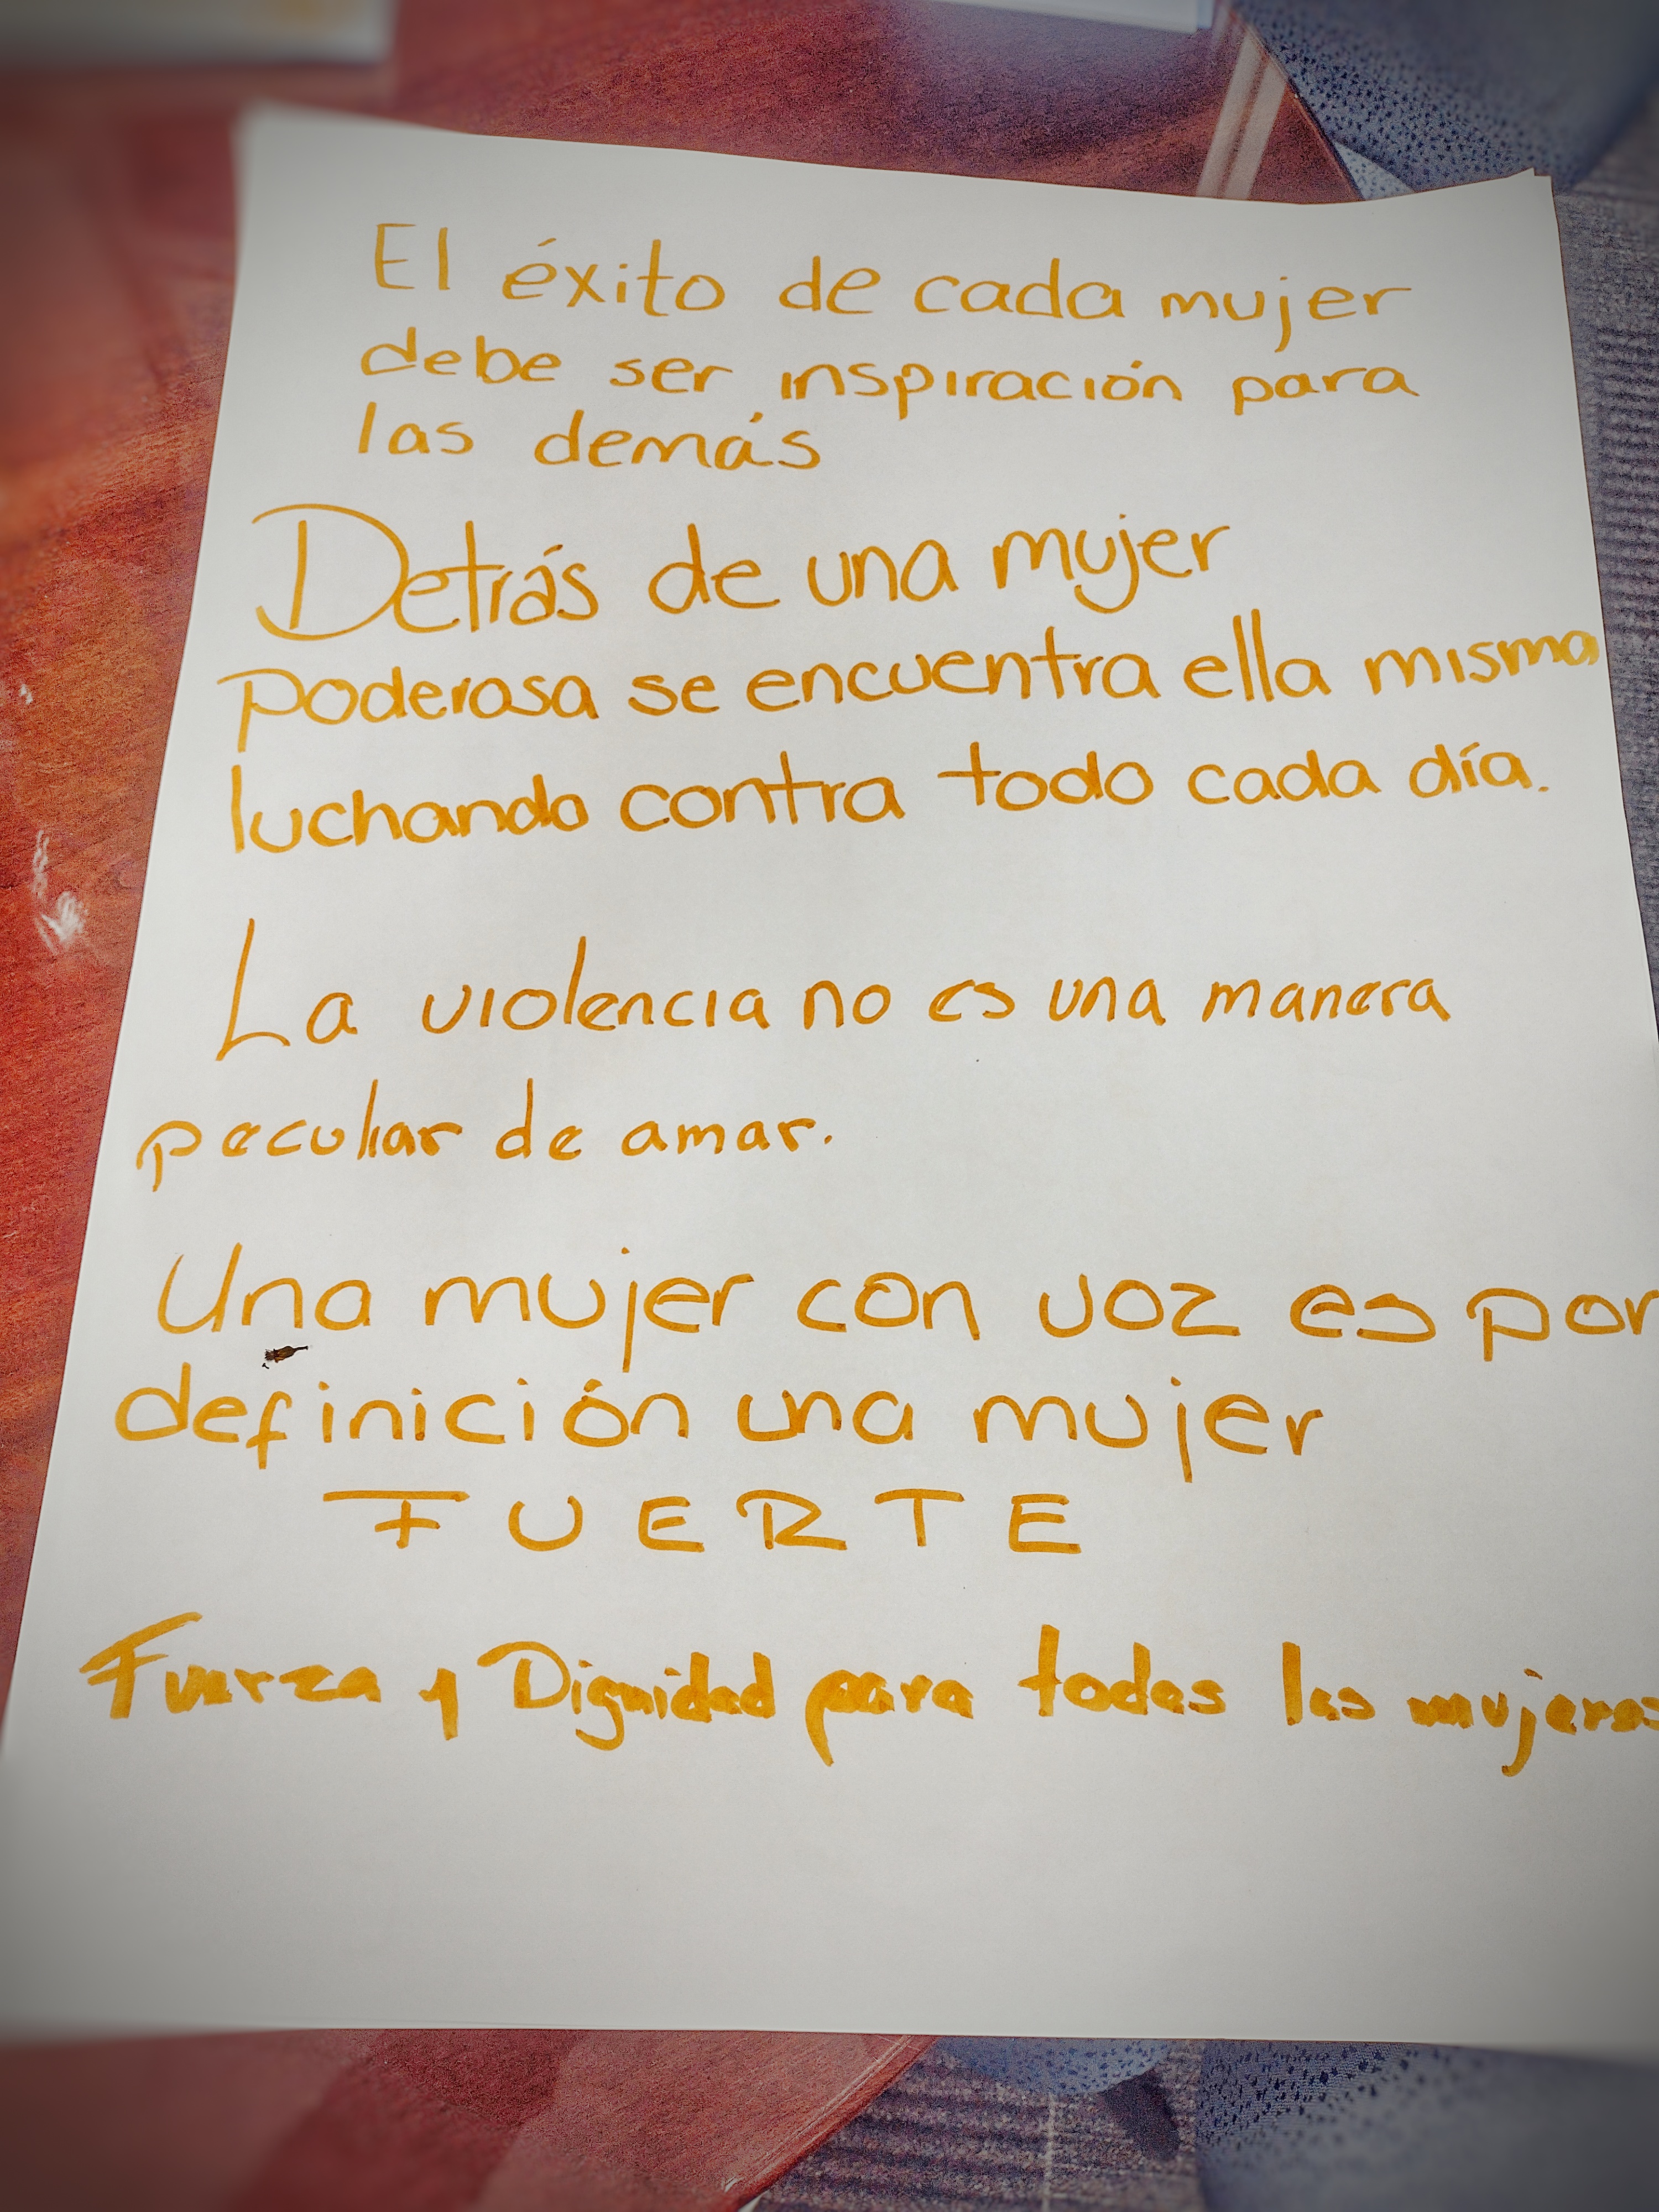 El éxito de cada mujer
debe ser inspiración para
las demás
Detrás de una mujer
poderosa se encuentra ella misma
luchando contra todo cada día.
La violencia no es una manera
peculiar de amar.
Una mujer con voz es por
definición una mujer
FUERTE
Fuerza y Dignidad para todas las mujeres